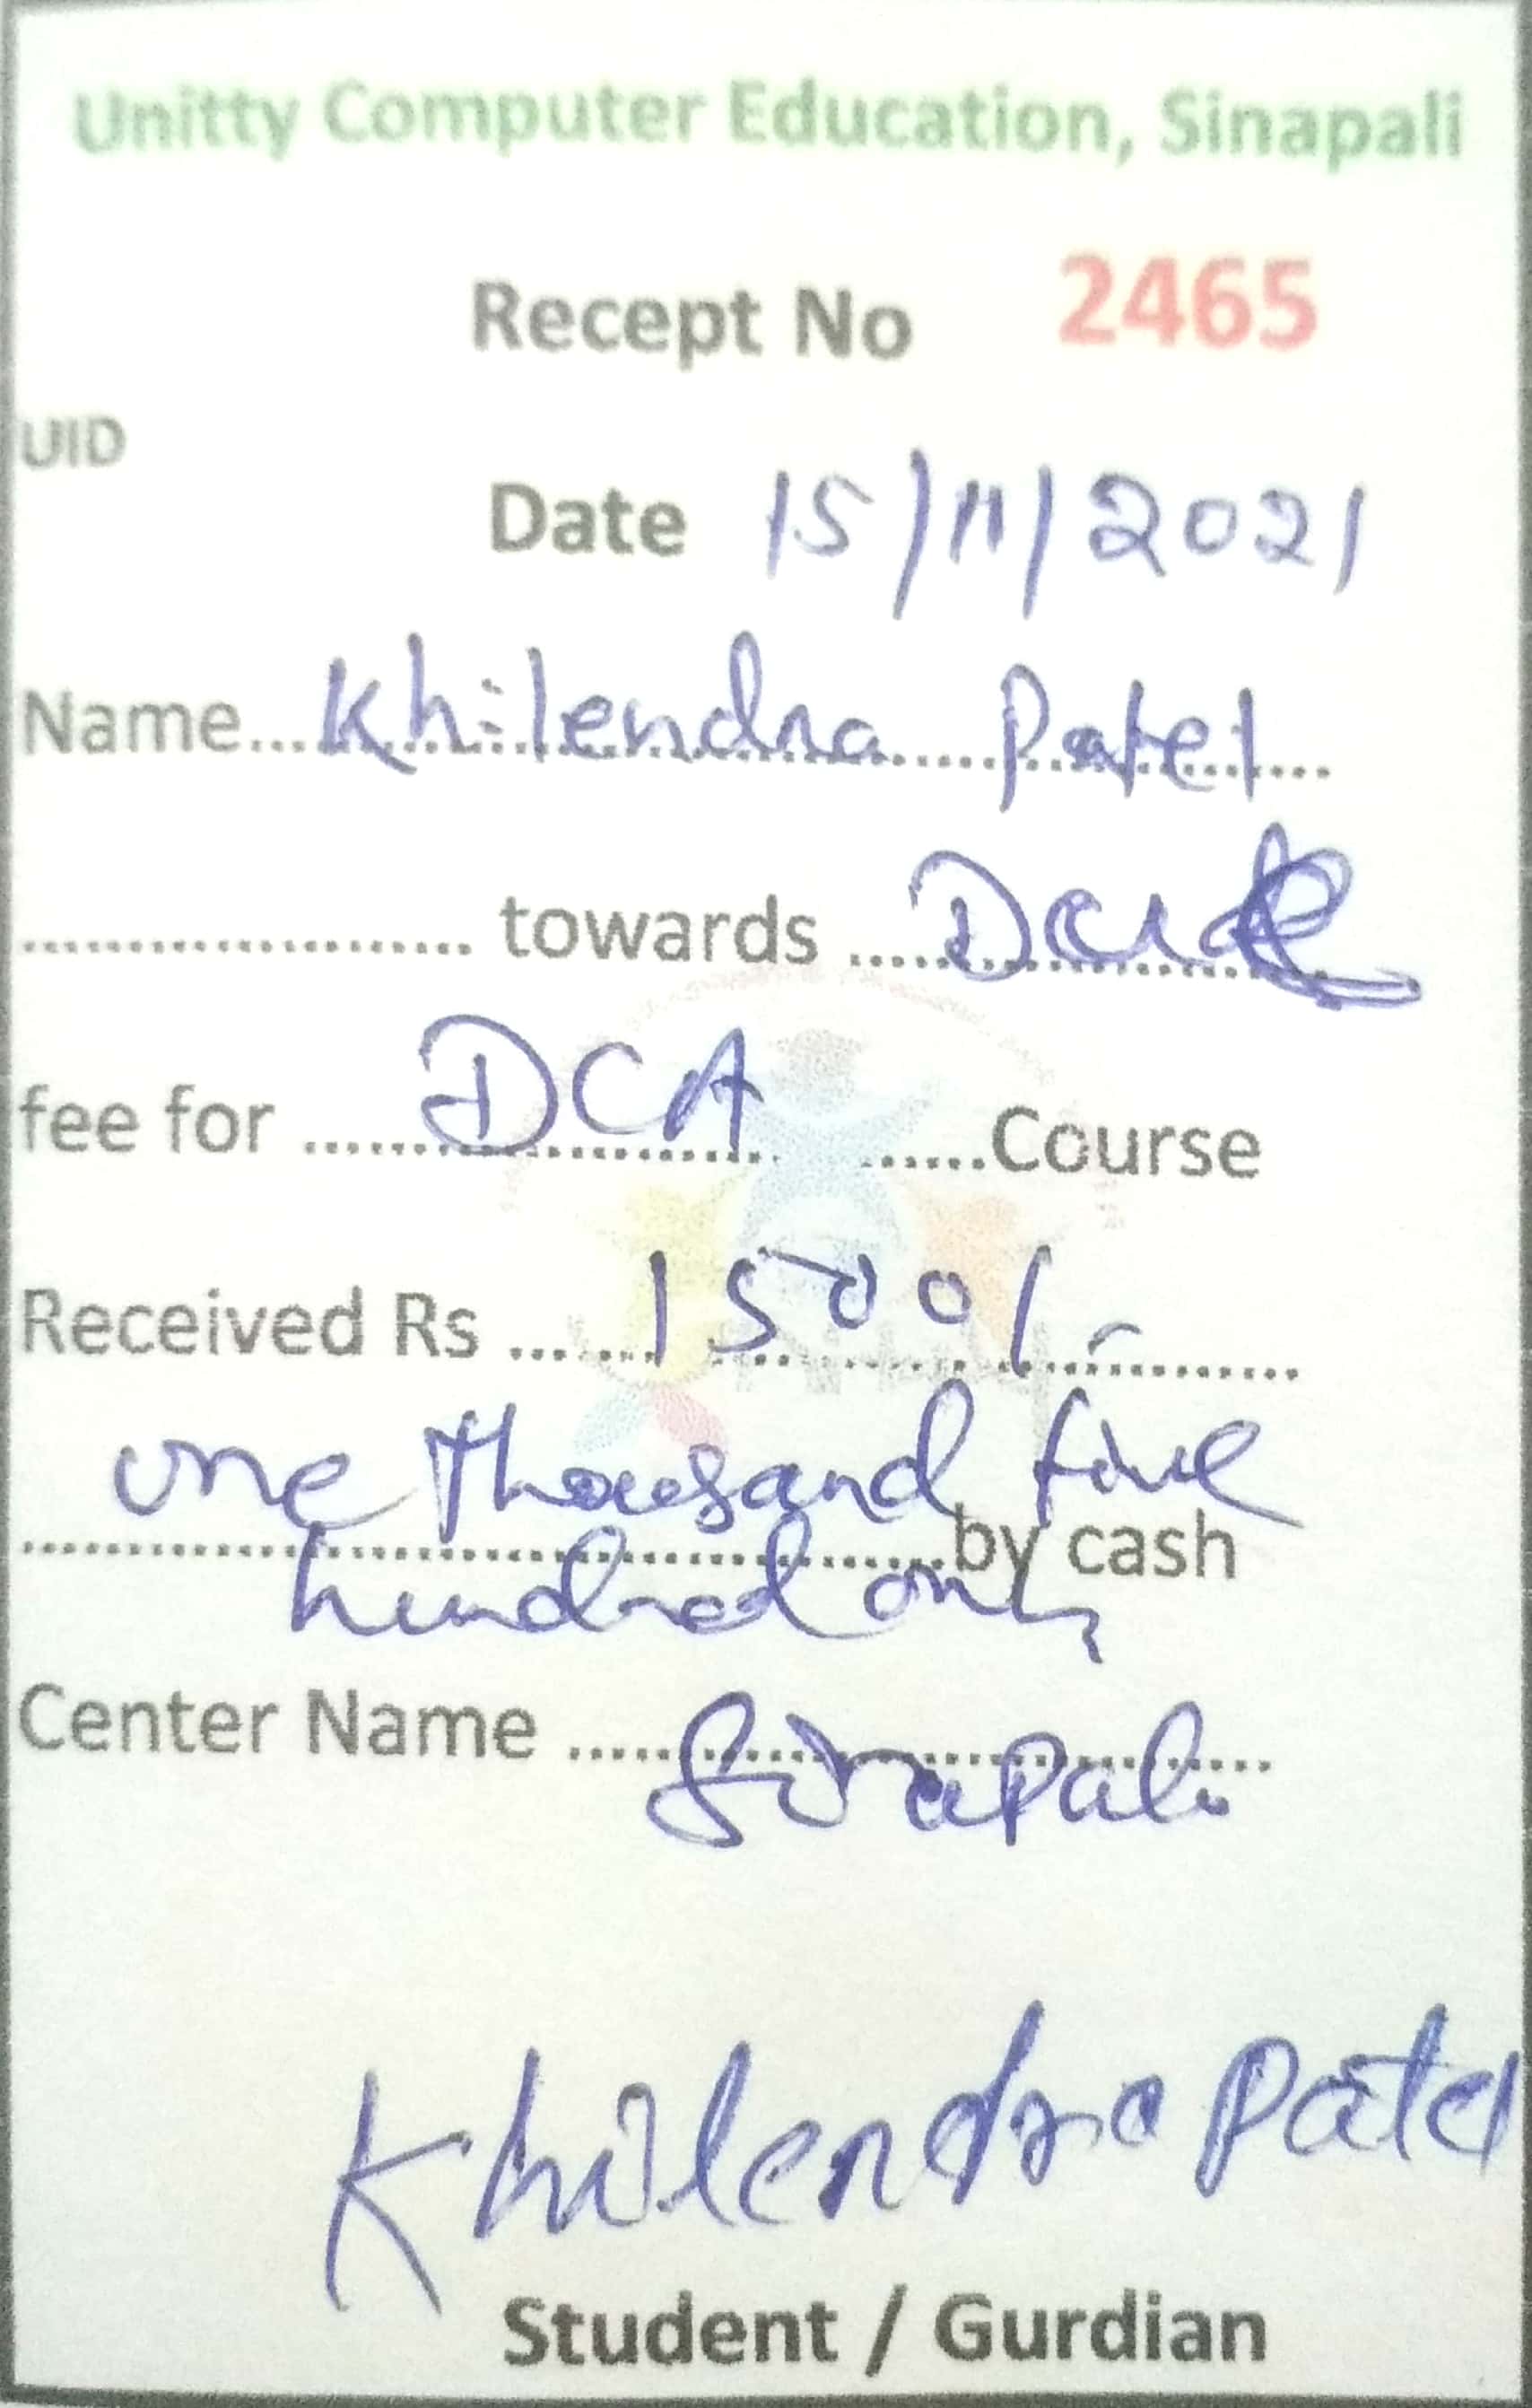 Unitty Computer Education, Sinapali
Recept No 2465
UID
Date 15/11/2021
Name....Khilendra Patel....
.................... towards ....
fee for ....DCA.... ......Course
Received Rs ....1500/-....
one thousand five
....by cash
hundred only
Center Name ....Sinapali....
Khilendra Patel
Student / Gurdian